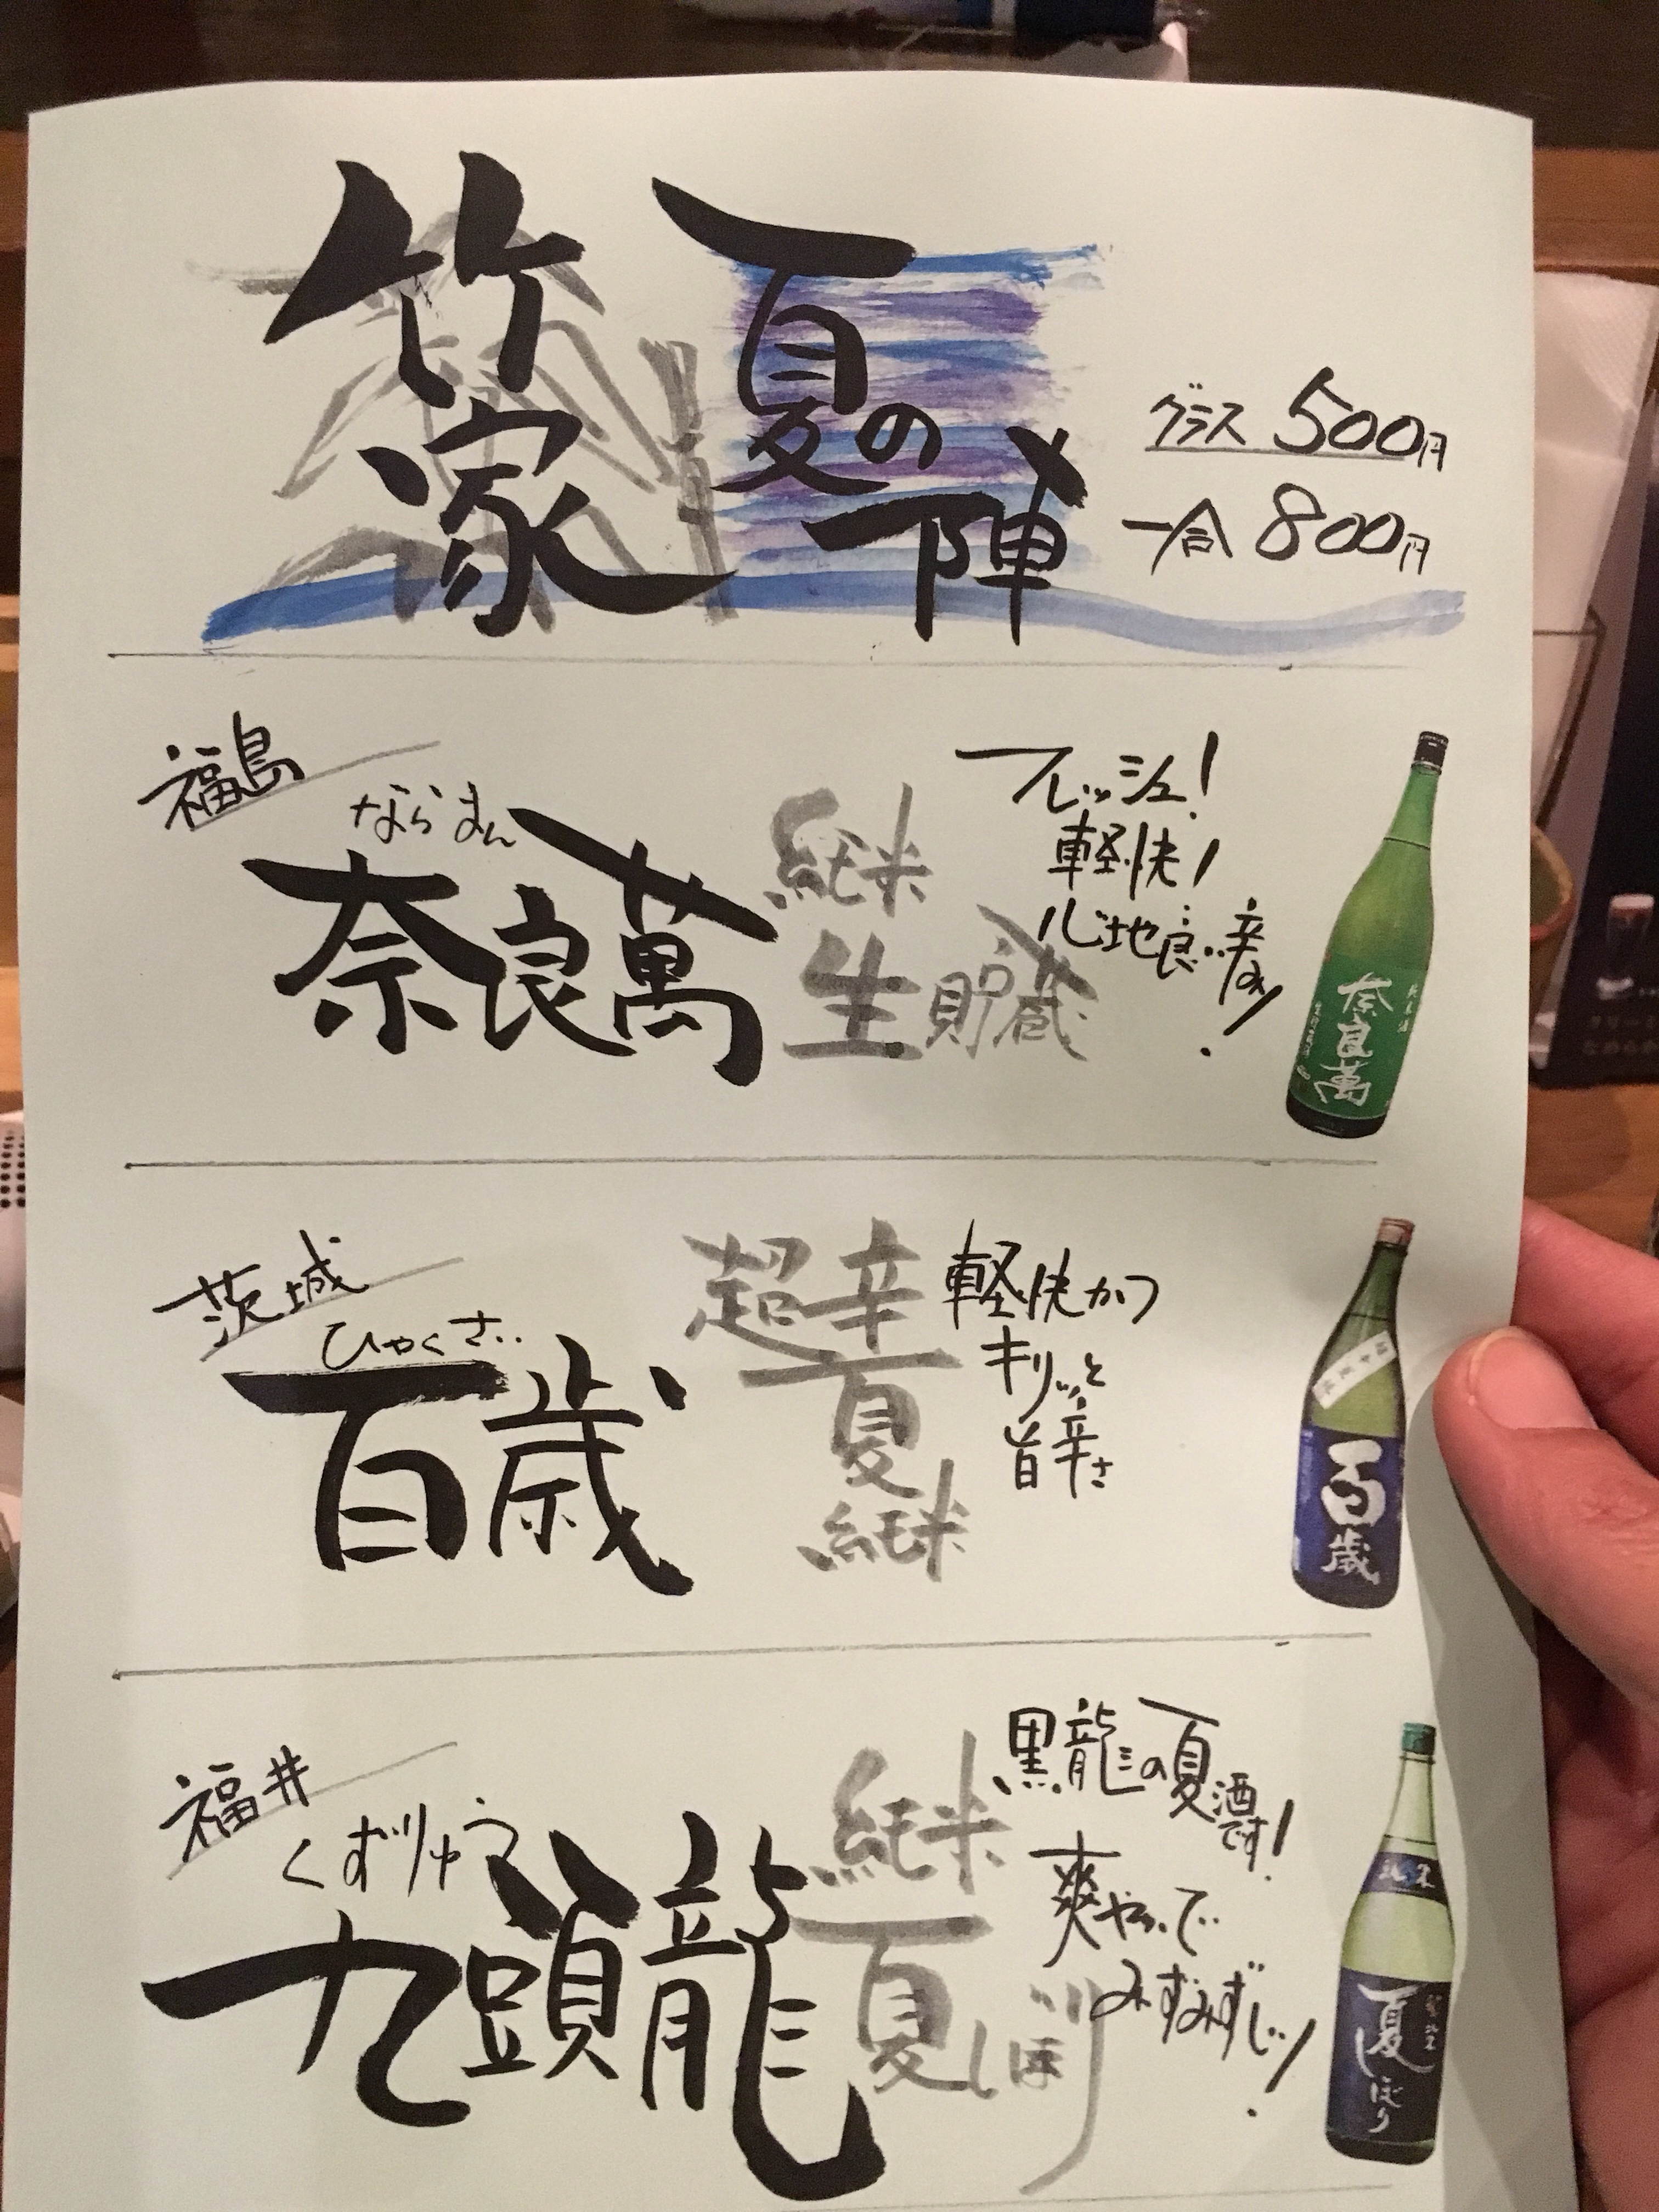 竹家 夏の陣
グラス 500円
一合 800円
福島
ならまん
奈良萬
純米
生貯蔵
フレッシュ!
軽快!
心地良い香り!
奈良萬
茨城
ひゃくさい
百歳
超辛
夏
純米
軽快かつ
キリッと
旨辛さ
百歳
福井
くずりゅう
九頭龍
純米
夏しぼり
黒龍の夏酒です!
爽やかで
みずみずしい!
純米
夏しぼり